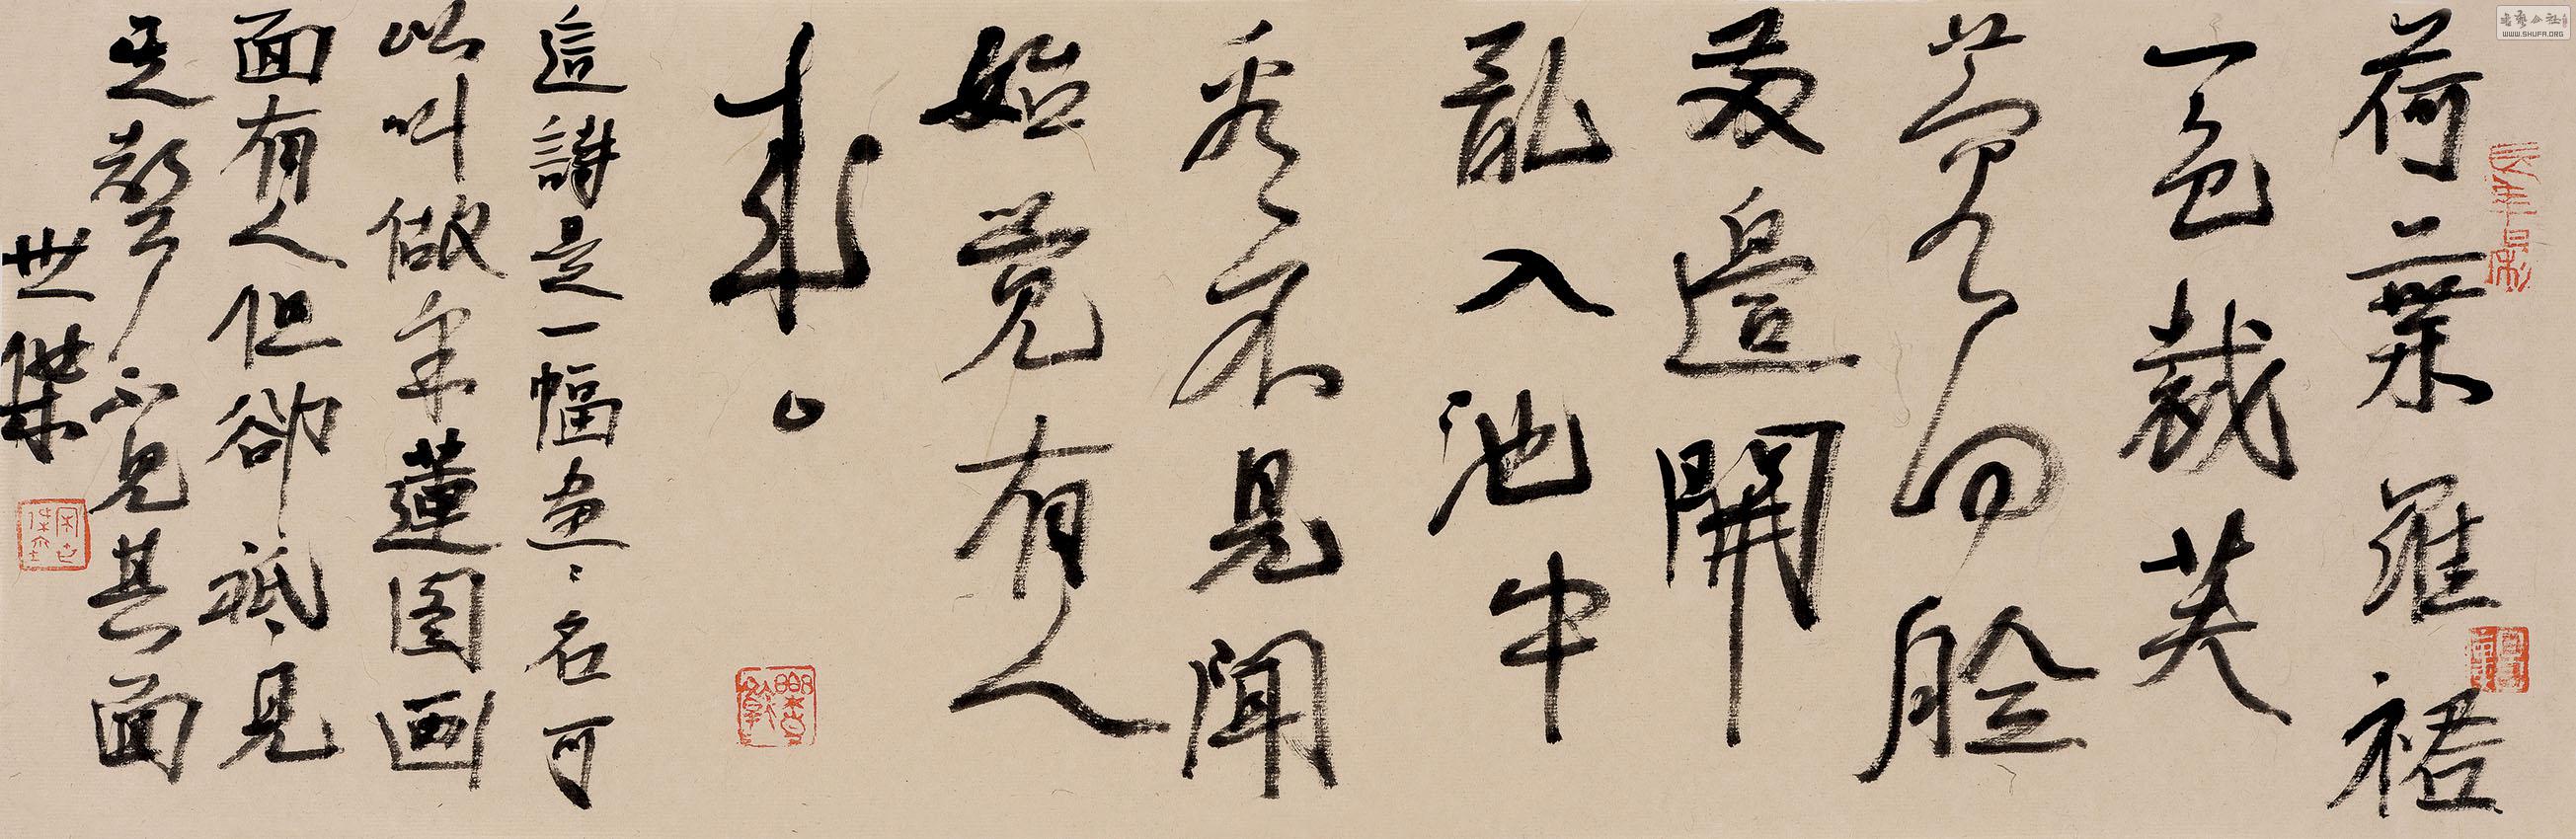 荷葉羅裙
一色裁芙
蓉向臉
兩邊開
亂入池中
看不見聞
始覺有人
來
這詩是一幅畫〻名可
以叫做采蓮图画
面有人但卻祗見
其聲不見其面
世傑
WWW.SHUFA.ORG